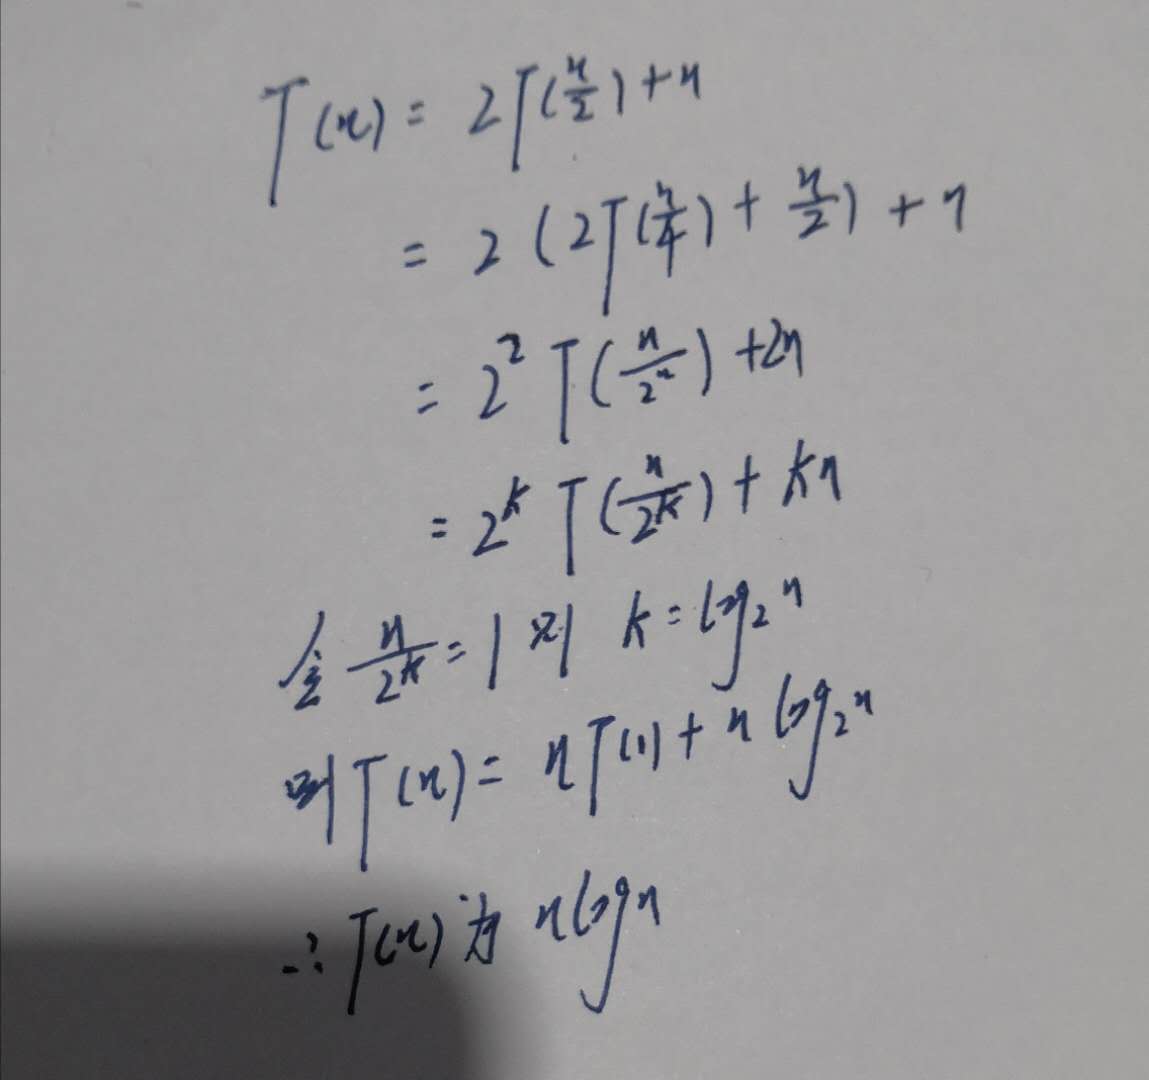 T(n) = 2T(n/2) + n
= 2(2T(n/4) + n/2) + n
= 2² T(n/2²) + 2n
= 2^k T(n/2^k) + kn
令 n/2^k = 1 则 k = log₂n
则 T(n) = nT(1) + n log₂n
∴ T(n) 为 nlogn